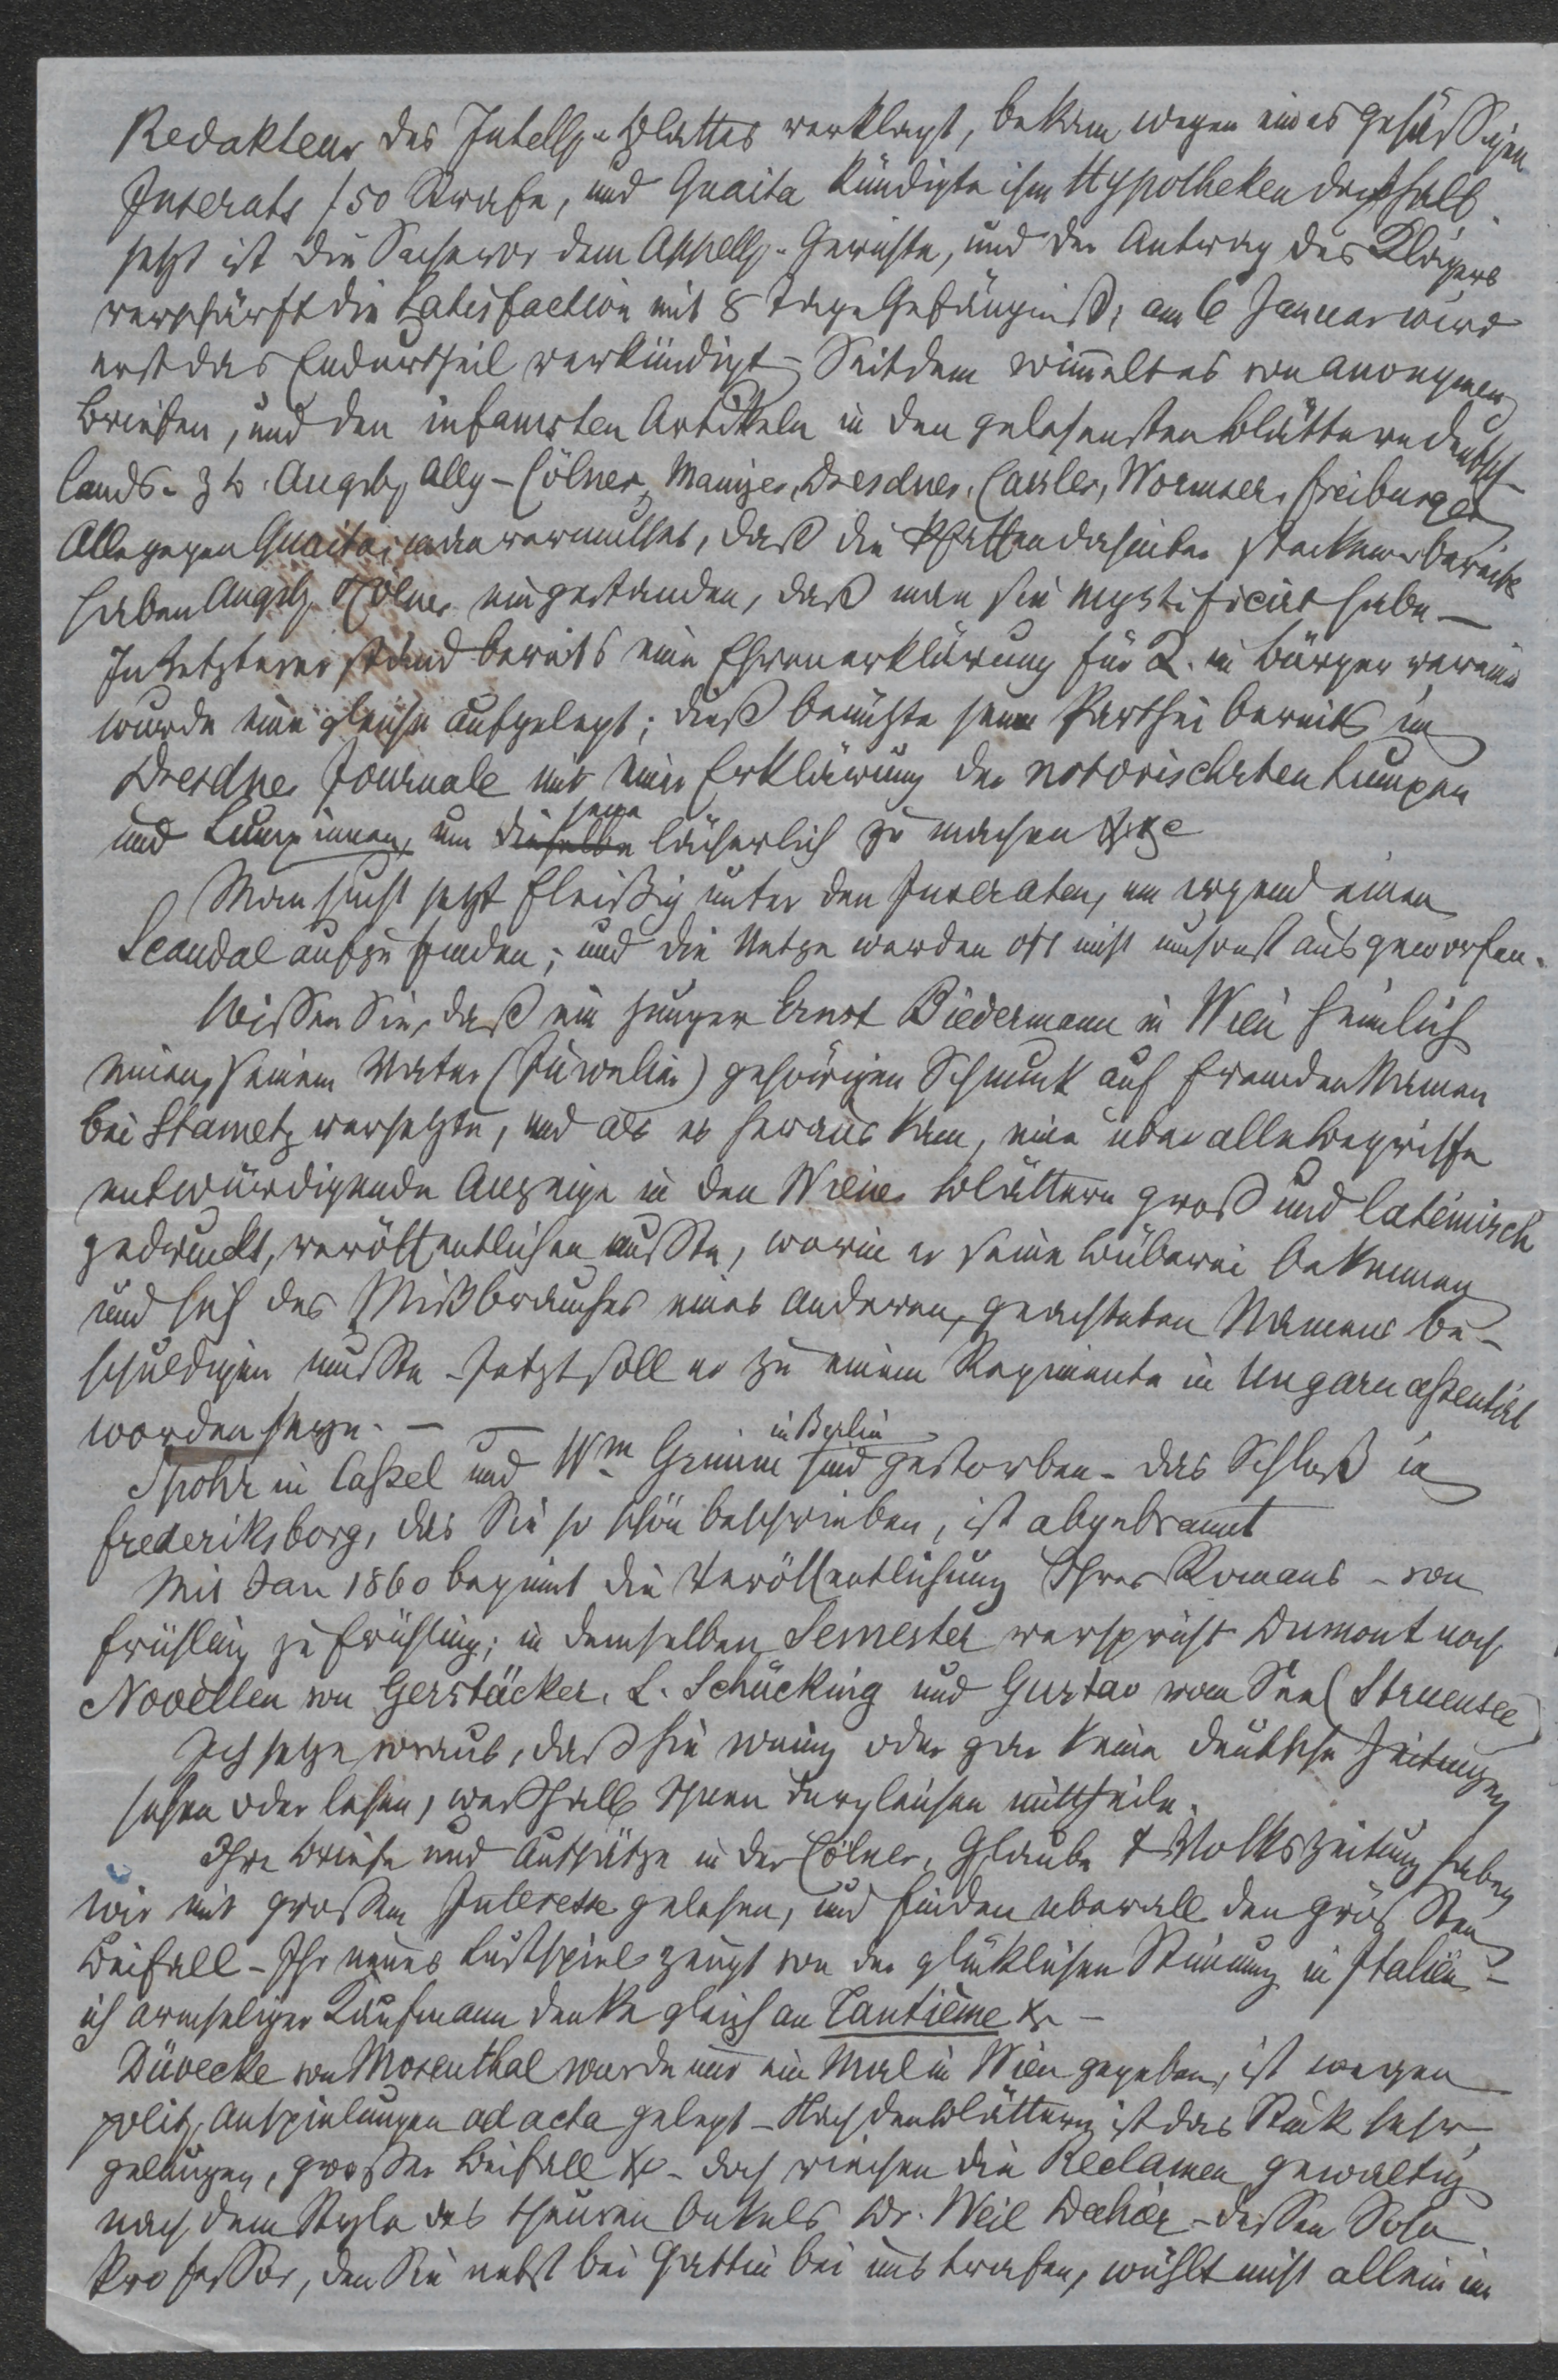 Redakteur des Intellg.-Blattes verklagt, bekam wegen eines gehässigen
Inserats f 50 Strafe, und Guaita kündigte ihm Hypotheken deßhalb.
jetzt ist die Sache vor dem Appellg.-Gerichte, und der Antrag des Klägers
verschärft die Satisfaction mit 8 Tage Gefängniß; am 6 Januar wird
erst das Endurtheil verkündigt – Seitdem wimmelt es von anonymen
Briefen, und den infamsten Artikeln in den gelesensten Blättern Deutsch-
lands. z b. Augsb. Allg – Cölner, Mainzer, Dresdner, Cassler, Wormser, Freiburger
Alle gegen Guaita; man vermuthet, daß die Pfaffen dahinter stecken – bereits
haben Augsb. & Cölner eingestanden, daß man sie mystificirt habe –
In letzterer stand bereits eine Ehrenerklärung für G. im Bürgerverein
wurde eine gleiche aufgelegt; dieß benützte jene Parthei bereits im
Dresdner Journale mit einer Erklärung der notorischsten Lumpen
und Lumpinnen, um dieselbe jene lächerlich zu machen &c
Man sucht jetzt fleißig unter den Inseraten, um irgend einen
Scandal aufzufinden; und die Netze werden oft nicht umsonst ausgeworfen.
Wissen Sie, daß ein junger Ernst Biedermann in Wien heimlich
einen, seinem Vater (Juwelier) gehörigen Schmuck auf fremden Namen
bei Stametz versetzte, und als es heraus kam, eine über alle Begriffe
entwürdigende Anzeige in den Wiener Blättern groß und lateinisch
gedruckt, veröffentlichen mußte, worin er seine Büberei bekennen
und sich des Mißbrauches eines anderen, geachteten Namens be-
schuldigen mußte – Jetzt soll er zu einem Regimente in Ungarn assentirt
worden seyn. – –
Spohr in Cassel und Wm Grimm in Berlin sind gestorben – das Schloß in
Frederiksborg, das Sie so schön beschrieben, ist abgebrannt
Mit Jan 1860 beginnt die Veröffentlichung Ihres Romans – von
Frühling zu Frühling; in demselben Semester verspricht Dumont noch
Novellen von Gerstäcker, L. Schücking und Gustav vom See (Struensee)
Ich setze voraus, daß Sie wenig oder gar keine deutsche Zeitungen
sehen oder lesen, weßhalb Ihnen dergleichen mittheile.
Ihre Briefe und Aufsätze in der Cölner, Glaube & Volkszeitung haben
wir mit großem Interesse gelesen, und finden überall den größten
Beifall – Ihr neues Lustspiel zeugt von der glücklichen Stimmung in Italien –
ich armseliger Kaufmann denke gleich an Tantième &c –
Düvecke von Mosenthal wurde nur ein Mal in Wien gegeben, ist wegen
polit. Anspielungen ad acta gelegt – Nach den Blättern ist das Stück sehr
gelungen, großer Beifall &c – doch riechen die Reclamen gewaltig
nach dem Style des theuren Onkels Dr. Weil dahier – dessen Sohn
Professor, den Sie nebst bei Gattin bei uns trafen, wühlt nicht allein in